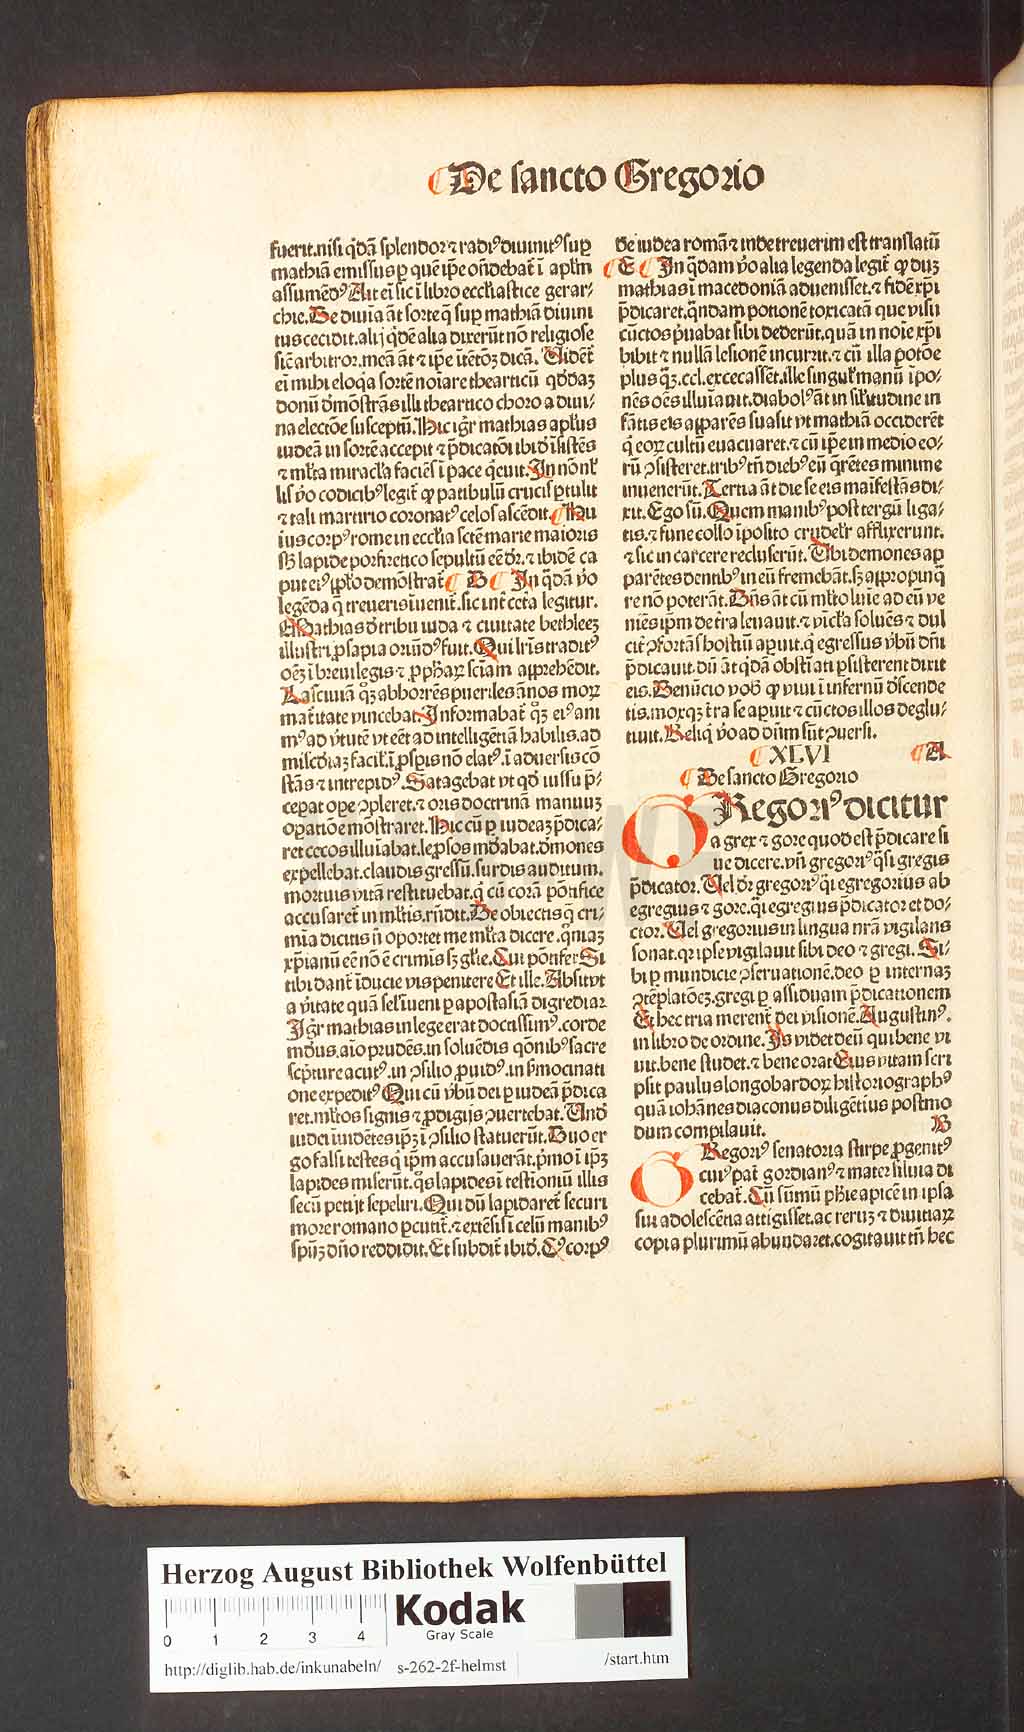 De sancto Gregorio
fuerit.nisi qͥdā splendor ⁊ radiꝰ diuinitꝰ suꝑ
mathiā emissus ꝑ quē ip̄e on̄debat̄ ī apl̄m
assumēdꝰ Ait eī sic ī libro eccl̓iastice gerar⸗
chie. De diuīa āt sorte q̄ suꝑ mathiā diuini
tus cecidit.alij qͥdē alia dixerūt nō religiose
sic̄ arbitror.meā āt ⁊ ip̄e ītētōꝫ dicā. Uidet̄
eī mihi eloqͥa sortē noīare thearticū qͦddaꝫ
donū d̓mōstrās illi theartico choro a diui⸗
na electōe susceptū. Hic igr̄ mathias apl̓us
iudeā in sortē accepit ⁊ p̄dicatōī ibid̓ īsistēs
⁊ ml̓ta miracl̓a faciēs ī pace qͥeuit. In nōnl̓
lis ꝟo codicibꝰ legit̄ ꝙ patibulū crucis ꝑtulit
⁊ tali martirio coronatꝰ celos ascēdit. Hu
ius corpꝰ rome in eccl̓ia sct̄e marie maioris
sb̓ lapide porfiretico sepultū eē dr̄. ⁊ ibidē ca
put eiꝰ ipl̓o demōstrat̄ B In qͥdā ꝟo
legēda q̄ treueris īuenit̄.sic int̄ cet̄a legitur.
Mathias d̓ tribu iuda ⁊ ciuitate bethleeꝫ
illustri ꝓsapia oriūdꝰ fuit. Qui lr̄is traditꝰ
oēꝫ ī breui legis ⁊ ꝓph̓aꝝ sciam apprehēdit.
Lasciuiā qͣꝫ abhorrēs pueriles ānos moꝝ
mat̓itate vincebat. Informabat̄ qͣꝫ eiꝰ ani
mꝰ ad ꝟtutē vt eēt ad intelligētiā habilis.ad
misc̓diaꝫ facil̓.ī ꝓspis nō elatꝰ.ī aduersis cō
stās ⁊ intrepidꝰ. Satagebat vt qd̓ iussu p̄⸗
cepat oꝑe ꝯpleret.⁊ oris doctrinā manuuꝫ
oꝑatiōe mōstraret. Hic cū ꝑ iudeaꝫ p̄dica⸗
ret cecos illuīabat.lep̄sos mūdabat.d̓mones
expellebat.claudis gressū.surdis auditum.
mortuis vitā restituebat.qͥ cū corā pōtifice
accusaret̄ in ml̓tis.rn̄dit. De obiectis q̄ cri⸗
mīa dicitis n̄ oportet me ml̓ta dicere.qm̄aꝫ
xp̄ianū eē nō ē crimis sꝫ gl̓ie. Cui pōtifex Si
tibi dant̄ īducie vis penitere Et ille. Absit vt
a ꝟitate quā sel̓ īueni ꝑ apostasiā digrediar
Igr̄ mathias in lege erat doctissimꝰ.corde
mūdus.aīo prudēs.in soluēdis qōnibꝰ sacre
scpt̄ure acutꝰ.in ꝯsilio ꝓuidꝰ.in s̓mocinati
one expeditꝰ Qui cū ꝟbū dei ꝑ iudeā p̄dica
ret.ml̓tos signis ⁊ ꝓdigijs ꝯuertebat. Und̓
iudei inuidētes ip̄ꝫ ī ꝯsilio statuerūt. Duo er
go falsi testes qͥ ip̄m accusauerāt.pͥmo ī ip̄ꝫ
lapides miserūt.qͦs lapides ī testioniū illis
secū petijt sepeliri. Qui dū lapidaret̄ securi
more romano ꝑcutit̄.⁊ extēsis ī celū manibꝰ
spm̄ꝫ dn̄o reddidit. Et subdit̄ ibid̓. Qꝰ corpꝰ
de iudea romā ⁊ inde treuerim est translatū
E In qͥdam ꝟo alia legenda legit̄ ꝙ duꝫ
mathias ī macedoniā aduenisset.⁊ fidē xp̄i
p̄dicaret.qͣndam potionē toxicatā que visū
cūctos pͥuabat sibi dederūt.quā in noīe xp̄i
bibit ⁊ nullā lesionē incurrit.⁊ cū illa potōe
plus qͣꝫ.ccl.excecasset.ille singul̓ manū īpo⸗
nēs oēs illuīauit.diabolꝰ āt in sil̓itudine in
fātis eis apparēs suasit vt mathiā occiderēt
qͥ eoꝝ cultū euacuaret.⁊ cū ip̄e in medio eo⸗
rū ꝯsisteret.tribꝰ tn̄ diebꝰ eū qͣrētes minime
inuenerūt. Tertia āt die se eis maīfestās di⸗
xit. Ego sū. Quem manibꝰ post tergū liga⸗
tis.⁊ fune collo īposito crudelr̄ afflixerunt.
⁊ sic in carcere recluserūt. Ubi demones ap
parētes dentibꝰ in eū fremebāt.sꝫ appropinqͣ
re nō poterāt. Dn̄s āt cū ml̓to luīe ad eū ve
niēs ip̄m de t̓ra leuauit.⁊ vicl̓a soluēs ⁊ dul
cit̓ ꝯfortās hostiū apuit.qͥ egressus ꝟbū dn̄i
p̄dicauit.dū āt qͥdā obstīati ꝑsisterent dixit
eis. Denūcio vob̓ ꝙ viui ī infernū d̓scende
tis.mox qꝫ t̓ra se apuit ⁊ cūctos illos deglu⸗
tiuit. Reliqͥ ꝟo ad dn̄m sūt ꝯuersi.
XLVI A
De sancto Gregorio
GRegoriꝰ dicitur
a grex ⁊ gore quod est p̄dicare si
ue dicere.vn̄ gregoriꝰ qͣsi gregis
p̄dicator. Uel dr̄ gregoriꝰ qͣsi egregorius ab
egregius ⁊ gore.qͣsi egregius p̄dicator et do⸗
ctor. Uel gregorius in lingua nr̄a vigilans
sonat.qꝛ ipse vigilauit sibi deo ⁊ gregi. Si⸗
bi ꝑ mundicie ꝯseruationē.deo ꝑ internaꝫ
ꝯtēplatōeꝫ.gregi ꝑ assiduam p̄dicationem
Et hec tria merent̄ dei visionē. Augustinꝰ.
in libro de ordine. Is videt deū qui bene vi
uit.bene studet.⁊ bene orat Eius vitam scri
psit paulus longobardoꝝ historiographꝰ
quā iohānes diaconus diligētius postmo
dum compilauit. B
GRegoriꝰ senatoria stirpe ꝓgenitꝰ
cuiꝰ pat̄ gordianꝰ ⁊ mater siluia di
cebat̄. Cū sūmū ph̄ie apicē in ipsa
sui adolescētia attigisset.ac reruꝫ ⁊ diuitiaꝝ
copia plurimū abundaret.cogitauit tn̄ hec
Herzog August Bibliothek Wolfenbüttel
0 1 2 3 4
Kodak
Gray Scale
http://diglib.hab.de/inkunabeln/ s-262-2f-helmst /start.htm